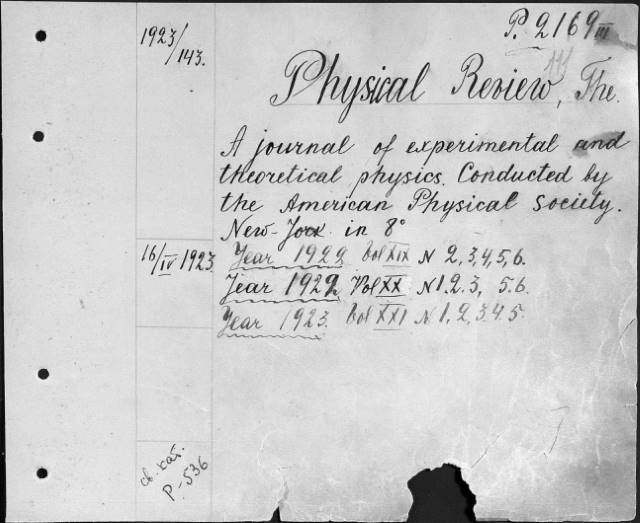 P. 2169 III
1923/143.
Physical Review, The.
A journal of experimental and
theoretical physics. Conducted by
the American Physical Society.
New-York in 8°
16/IV 1923.
Year 1922 Vol XIX N 2,3,4,5,6.
Year 1922 Vol XX N 1.2.3, 5.6.
Year 1923. Vol XXI N 1,2,3.4.5.
св. кат.
P.-536